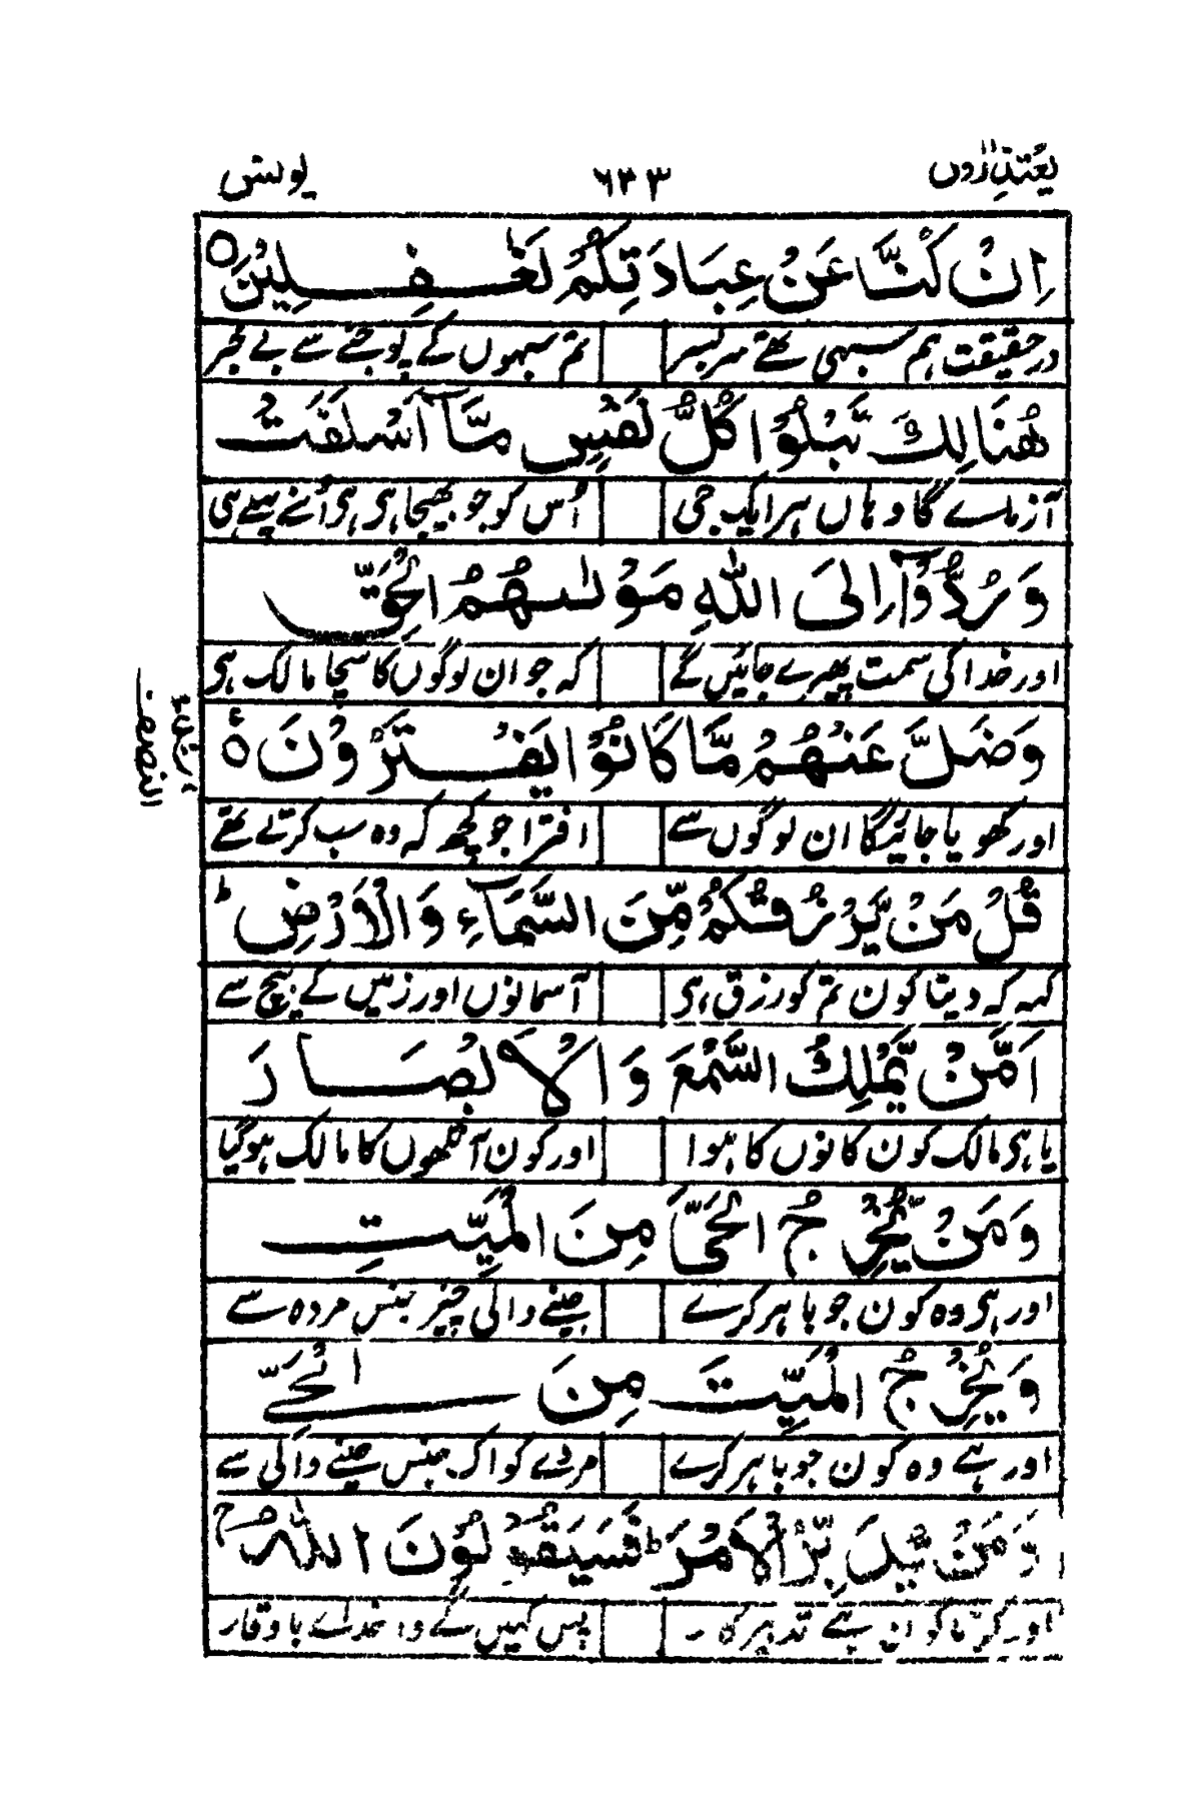 یعتذرون ۶۳۳ یونس
اِنْ كُنَّا عَنْ عِبَادَتِكُمْ لَغٰفِلِيْنَ ○
درحقیقت ہم سبھی تھے سربسر تم سبھوں کے پوجنے سے بے خبر
هُنَالِكَ تَبْلُوْا كُلُّ نَفْسٍ مَّآ اَسْلَفَتْ
آزمالے گا وہاں ہر ایک جی اُس کو جو بھیجا ہی ہی اُنے پہلے ہی
وَرُدُّوْٓا اِلَى اللّٰهِ مَوْلٰىهُمُ الْحَقِّ
اور خدا کی سمت پھیرے جائیں گے کہ جو ان لوگوں کا سچا مالک ہی
وَضَلَّ عَنْهُمْ مَّا كَانُوْا يَفْتَرُوْنَ ○
اور کھویا جائیگا ان لوگوں سے افترا جو کچھ کہ وہ سب کرتے تھے
قُلْ مَنْ يَّرْزُقُكُمْ مِّنَ السَّمَآءِ وَالْاَرْضِ ط
کہہ کہ دیتا کون تم کو رزق ہی آسمانوں اور زمیں کے بیچ سے
اَمَّنْ يَّمْلِكُ السَّمْعَ وَالْاَبْصَارَ
یا ہی مالک کون کانوں کا ہوا اور کون آنکھوں کا مالک ہو گیا
وَمَنْ يُّخْرِجُ الْحَيَّ مِنَ الْمَيِّتِ
اور ہی وہ کون جو باہر کرے جینے والی چیز جنس مردہ سے
وَيُخْرِجُ الْمَيِّتَ مِنَ الْحَيِّ
اور ہے وہ کون جو باہر کرے مردے کو اک جنس جینے والی سے
وَمَنْ يُّدَبِّرُ الْاَمْرَ ط فَسَيَقُوْلُوْنَ اللّٰهُ ج
پس کہیں گے وہ خدائے باوقار
النصف